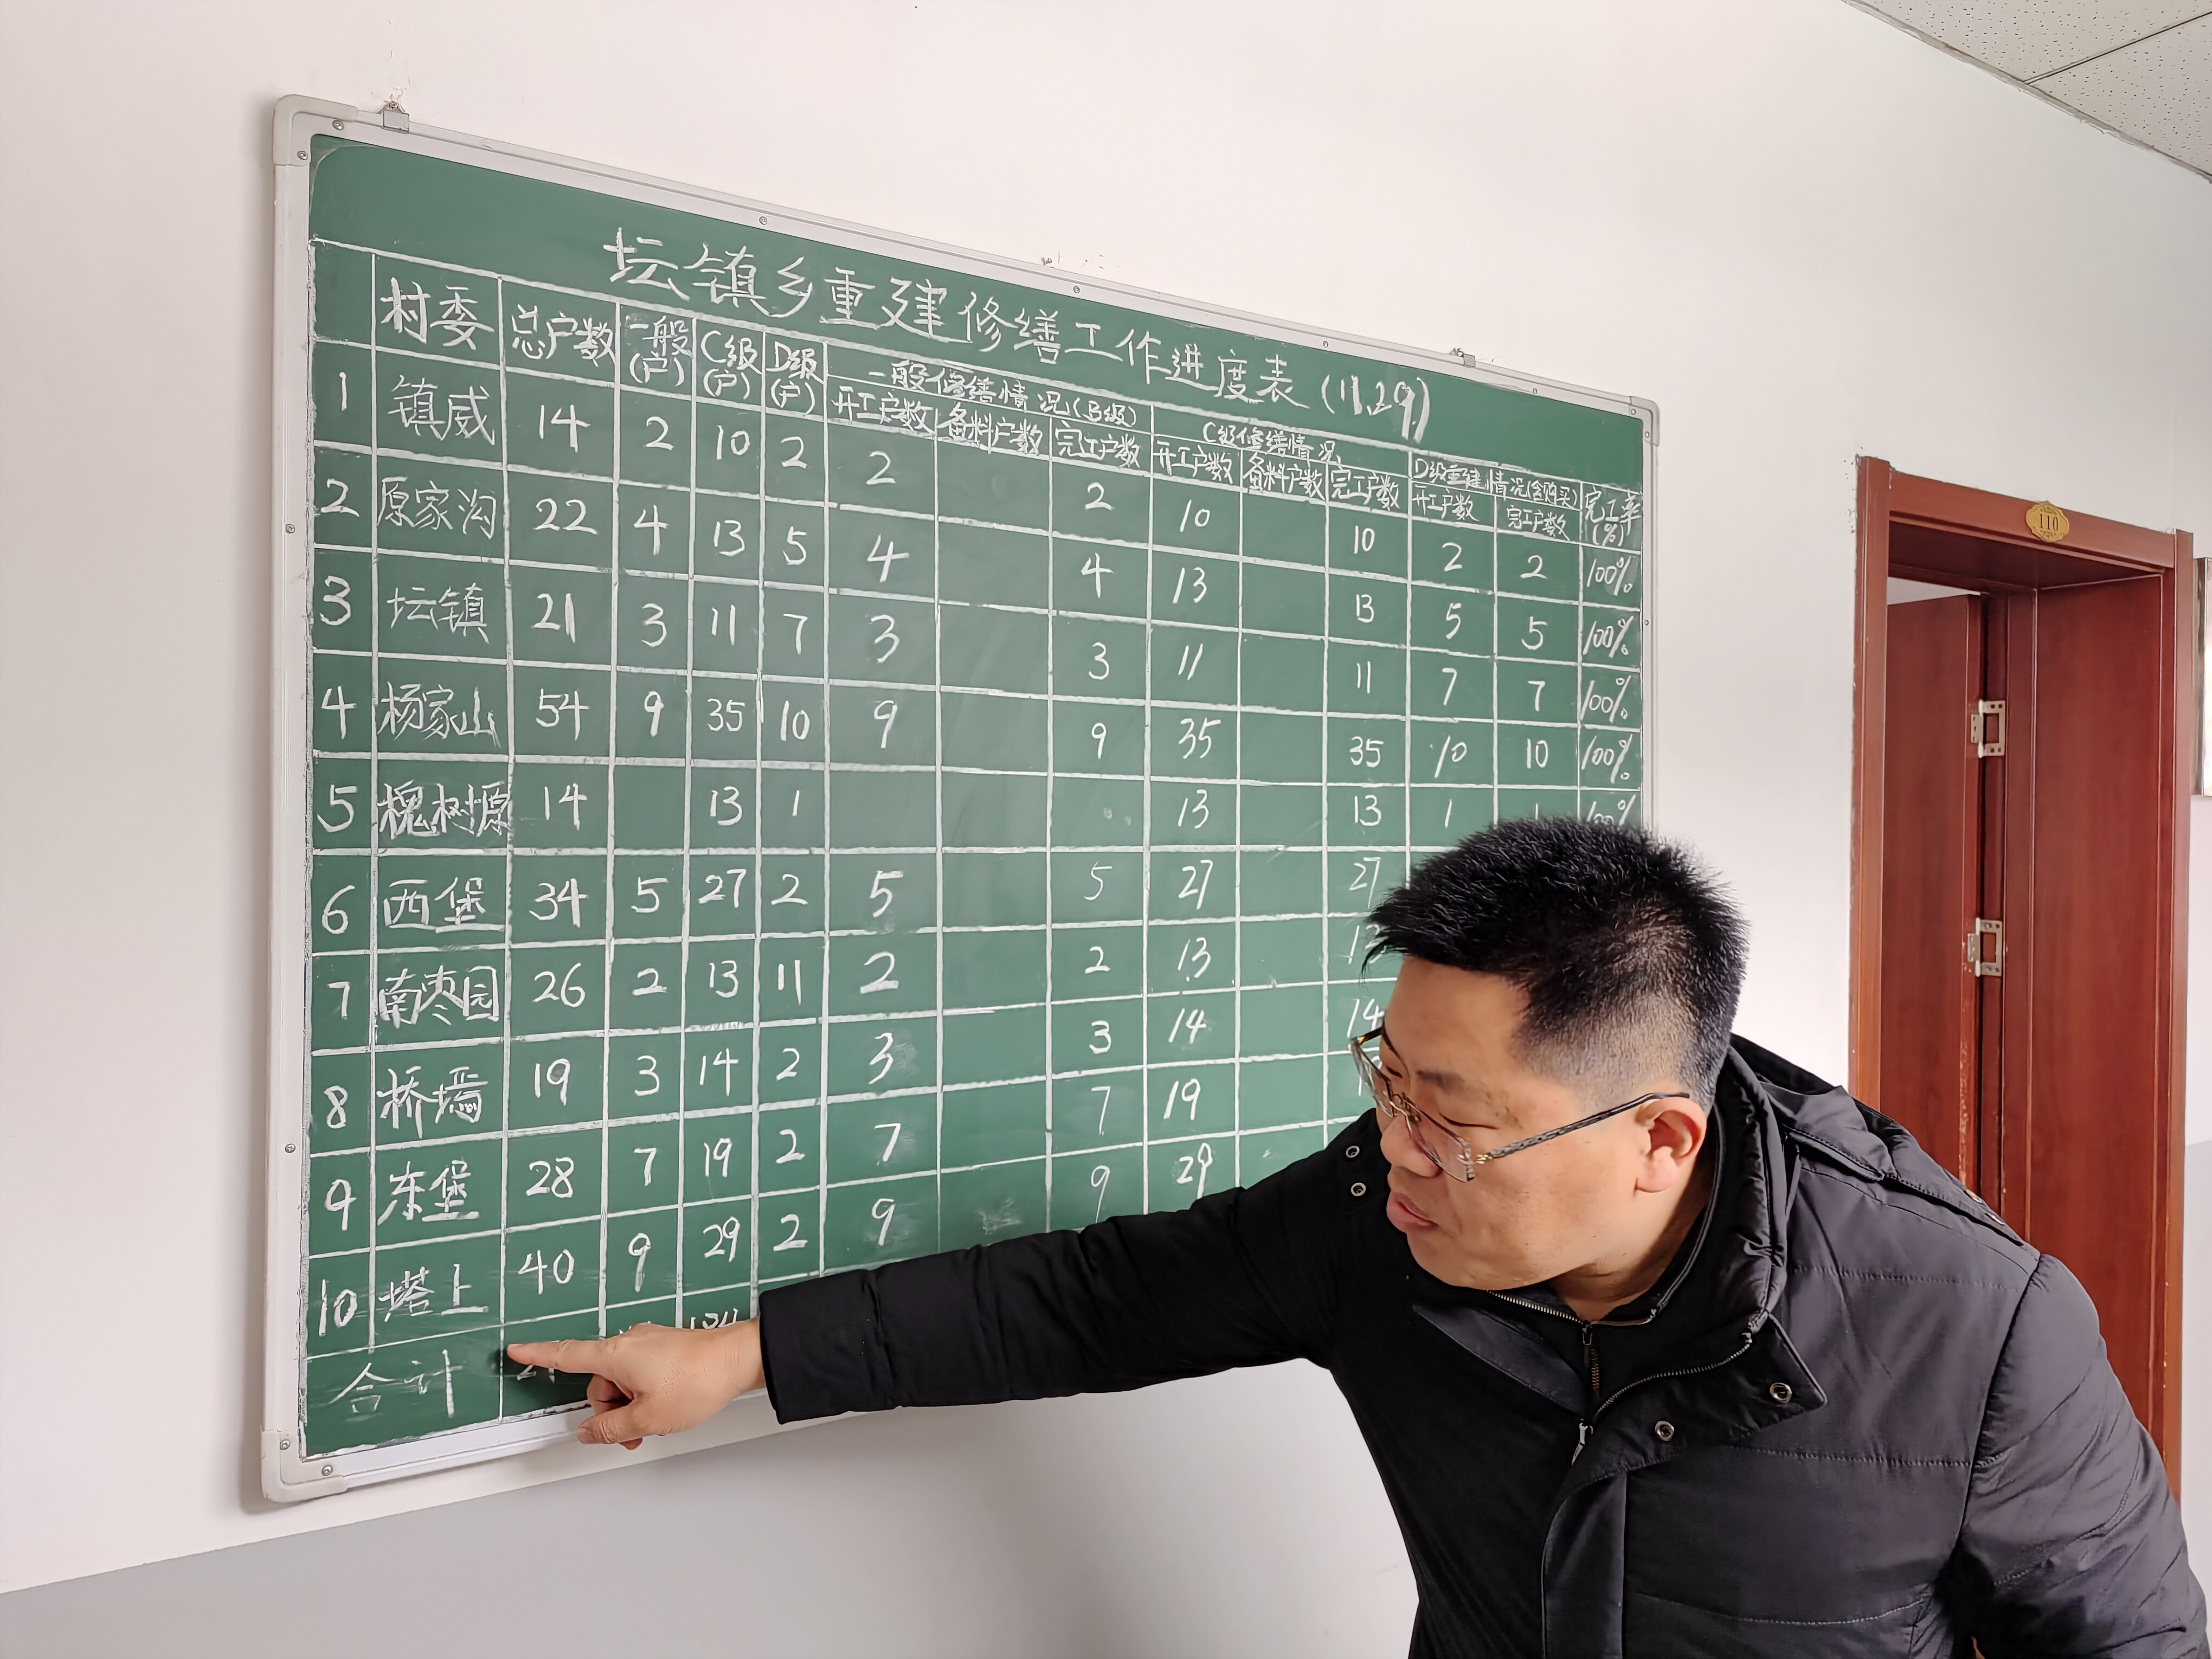 坛镇乡重建修缮工作进度表(11.29)
村委 总户数 一般(户) C级(户) D级(户) 一般修缮情况(B级) C级修缮情况 D级重建情况(含购买) 完工率(%)
开工户数 备料户数 完工户数 开工户数 备料户数 完工户数 开工户数 完工户数
1 镇威 14 2 10 2 2 2 10 10 2 2 100%
2 原家沟 22 4 13 5 4 4 13 13 5 5 100%
3 坛镇 21 3 11 7 3 3 11 11 7 7 100%
4 杨家山 54 9 35 10 9 9 35 35 10 10 100%
5 槐树原 14 13 1 13 13 1 1 100%
6 西堡 34 5 27 2 5 5 27 27
7 南枣园 26 2 13 11 2 2 13
8 桥墕 19 3 14 2 3 3 14 14
9 东堡 28 7 19 2 7 7 19
10 塔上 40 9 29 2 9 9 29
合计
110